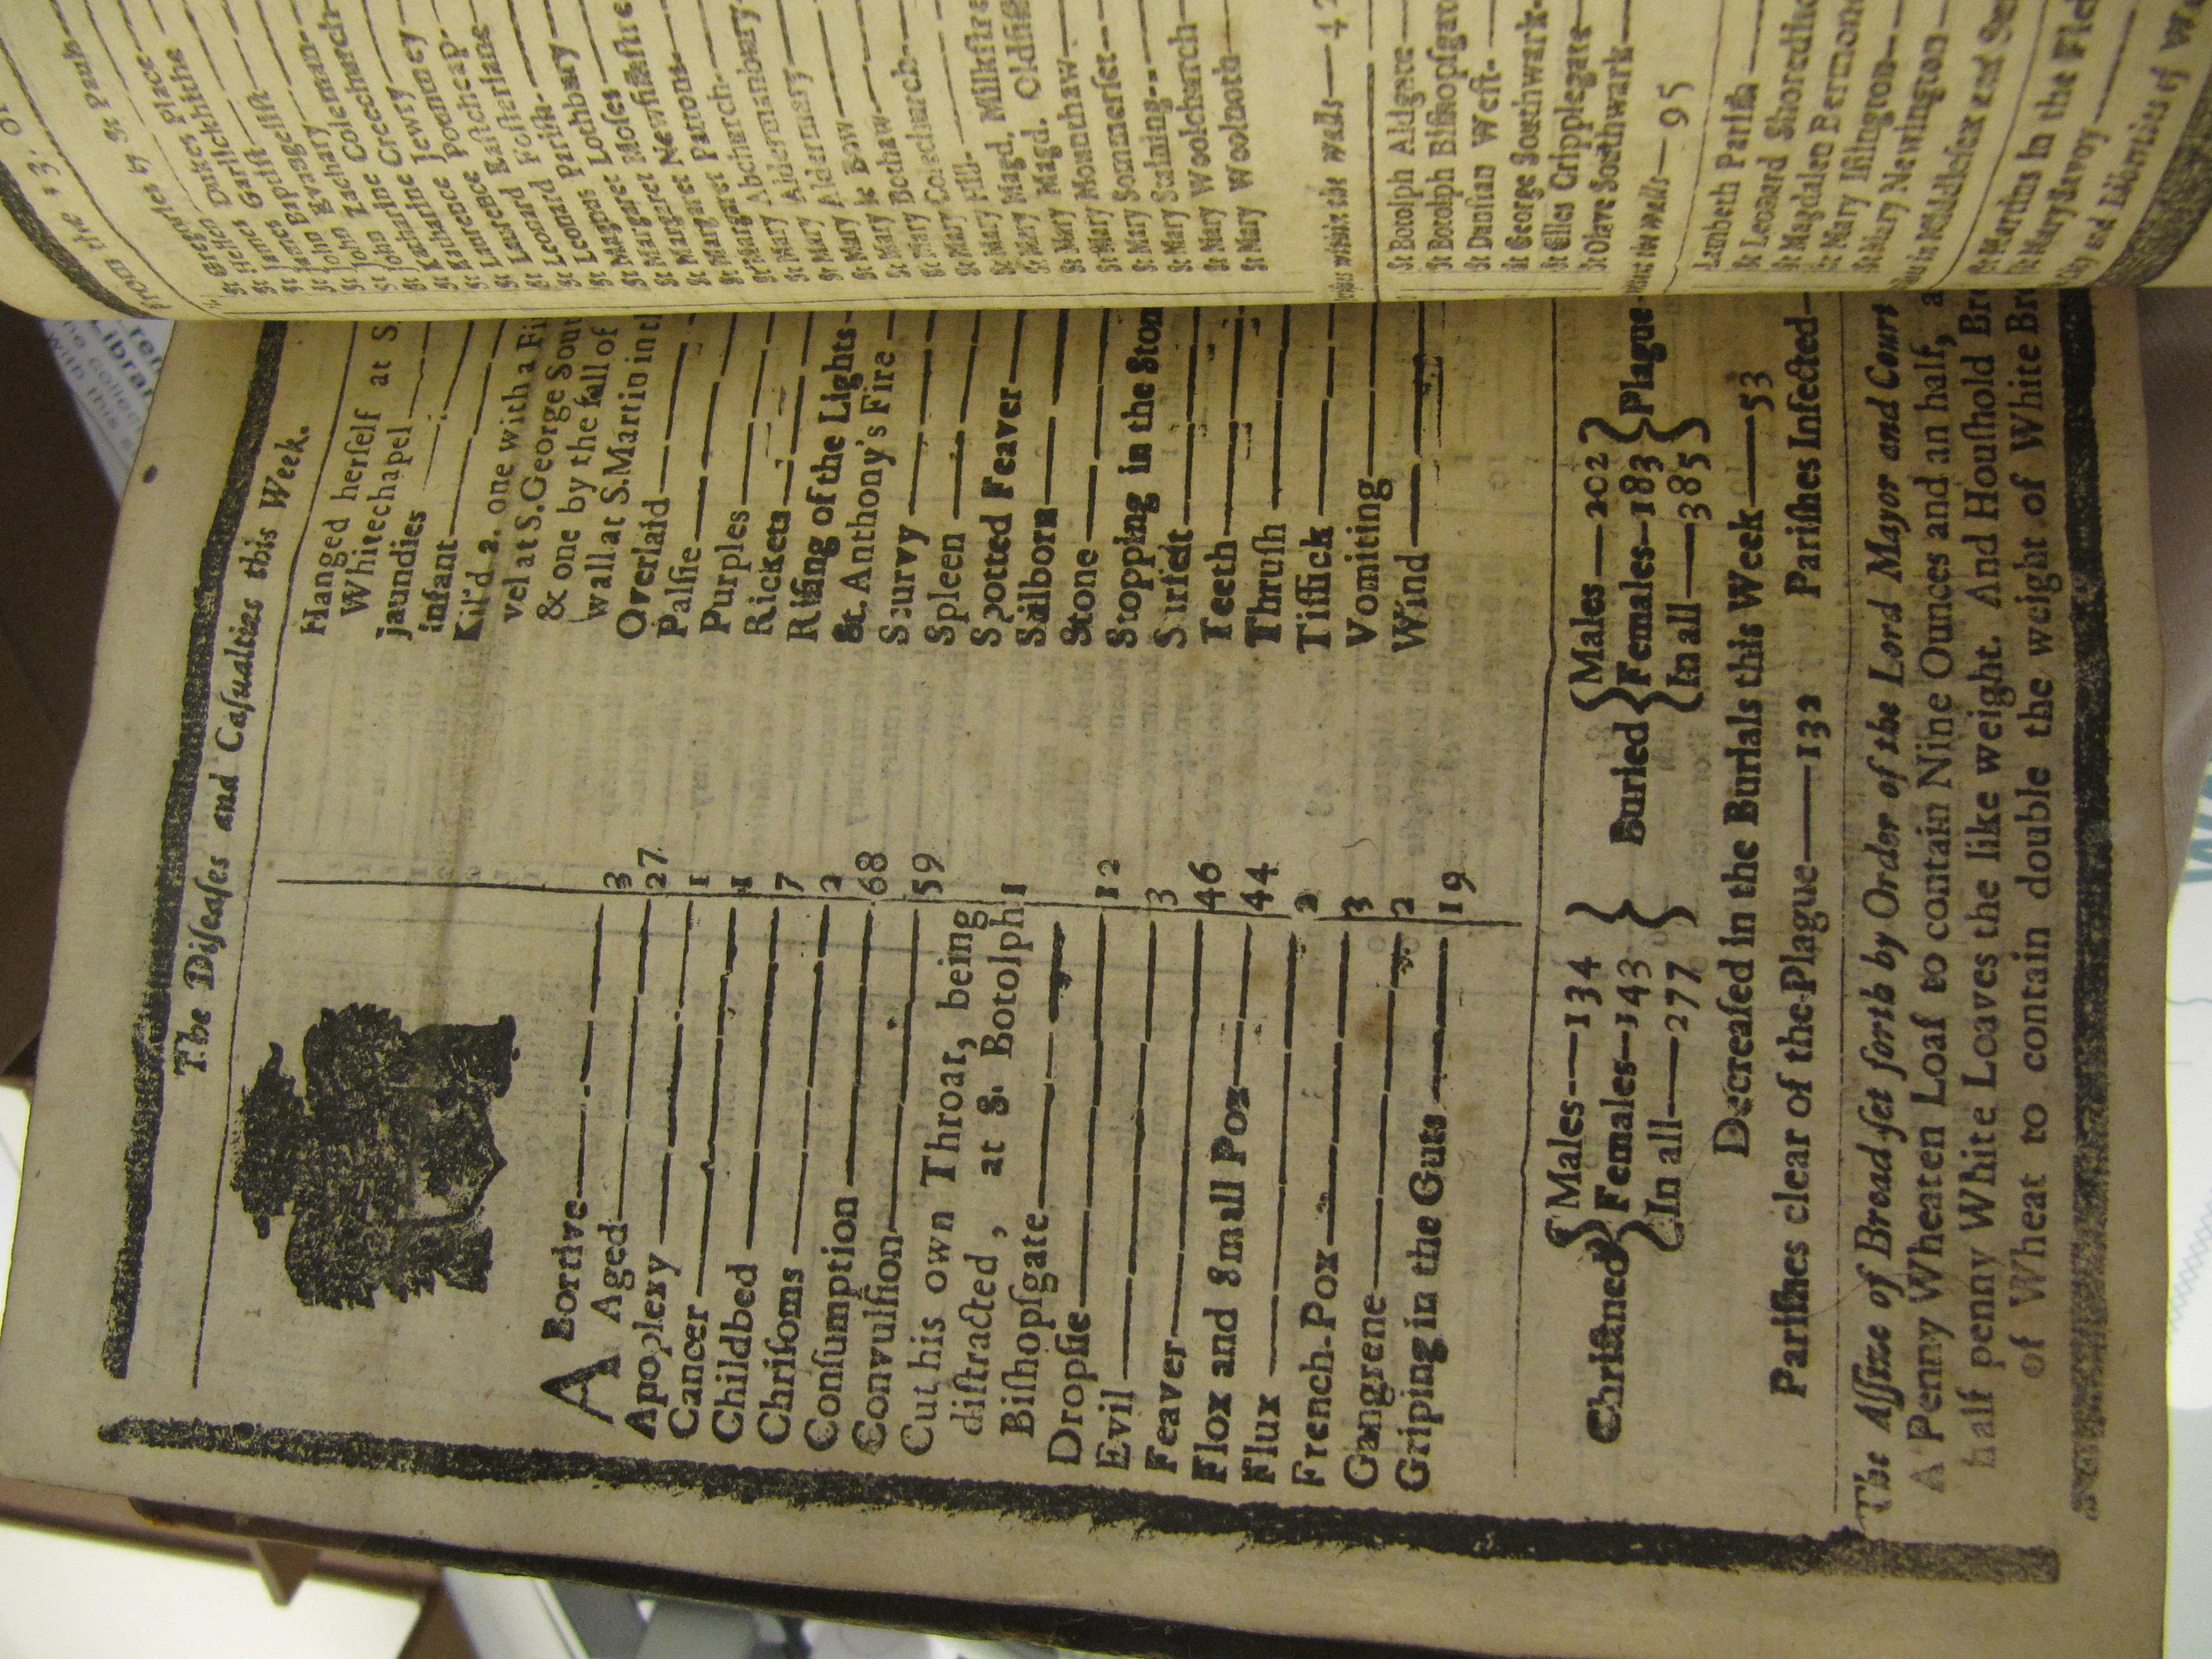 The Diſeaſes and Caſualties this Week.
ABortive 3
Aged 27
Apoplexy 1
Cancer 1
Childbed 7
Chriſoms 2
Conſumption 68
Convulſion 59
Cut his own Throat, being
diſtracted, at S. Botolph
Biſhopſgate 1
Dropſie 12
Evil 3
Feaver 46
Flox and Small Pox 44
Flux 2
French-Pox 3
Gangrene 2
Griping in the Guts 19
Hanged herſelf at S.
Whitechapel
Jaundies
Infant
Kil'd 2. one with a
vel at S. George
& one by the fall of
wall at S. Martin in
Overlaid
Palſie
Purples
Rickets
Riſing of the Lights
St. Anthony's Fire
Scurvy
Spleen
Spotted Feaver
Stilborn
Stone
Stopping in the
Surfeit
Teeth
Thruſh
Tiſſick
Vomiting
Wind
Chriſtned { Males—134 Females—143 In all—277 }
Buried { Males—202 Females—183 In all—385 } Plague
Decreaſed in the Burials this Week—53
Pariſhes clear of the Plague—132 Pariſhes Infected—
The Aſſize of Bread ſet forth by Order of the Lord Mayor and Court
A Penny Wheaten Loaf to contain Nine Ounces and an half,
half penny White Loaves the like weight. And Houſhold
of Wheat to contain double the weight of White
From the 13. of
St Gregories by St Pauls
St Hellen
Dukes Place
St James Garlickhithe
St John Evangeliſt
St John Zachary
St Katharine Colemanchurch
St Katharine Creechurch
St Laurence Jewry
St Laurence Pountney
St Leonard Eaſtcheap
St Leonard Foſterlane
St Magnus Pariſh
St Margaret Lothbury
St Margaret Moſes
St Margaret Newfiſhſtre
St Margaret Pattons
St Mary Abchurch
St Mary Aldermanbury
St Mary Aldermary
St Mary le Bow
St Mary Bothaw
St Mary Colechurch
St Mary Hill
St Mary Magd. Milkſtre
St Mary Magd. Oldfiſh
St Mary Mounthaw
St Mary Sommerſet
St Mary Staining
St Mary Woolchurch
St Mary Woolnoth
within the walls—42
St Botolph Aldgate
St Botolph Biſhopſgat
St Dunſtan Weſt
St George Southwark
St Giles Cripplegate
St Olave Southwark
without the walls—95
Lambeth Pariſh
St Leonard Shoreditc
St Magdalen Bermond
St Mary Iſlington
St Mary Newington
in Middleſex and
St Martins in the
St Mary Savoy
City and Liberties of